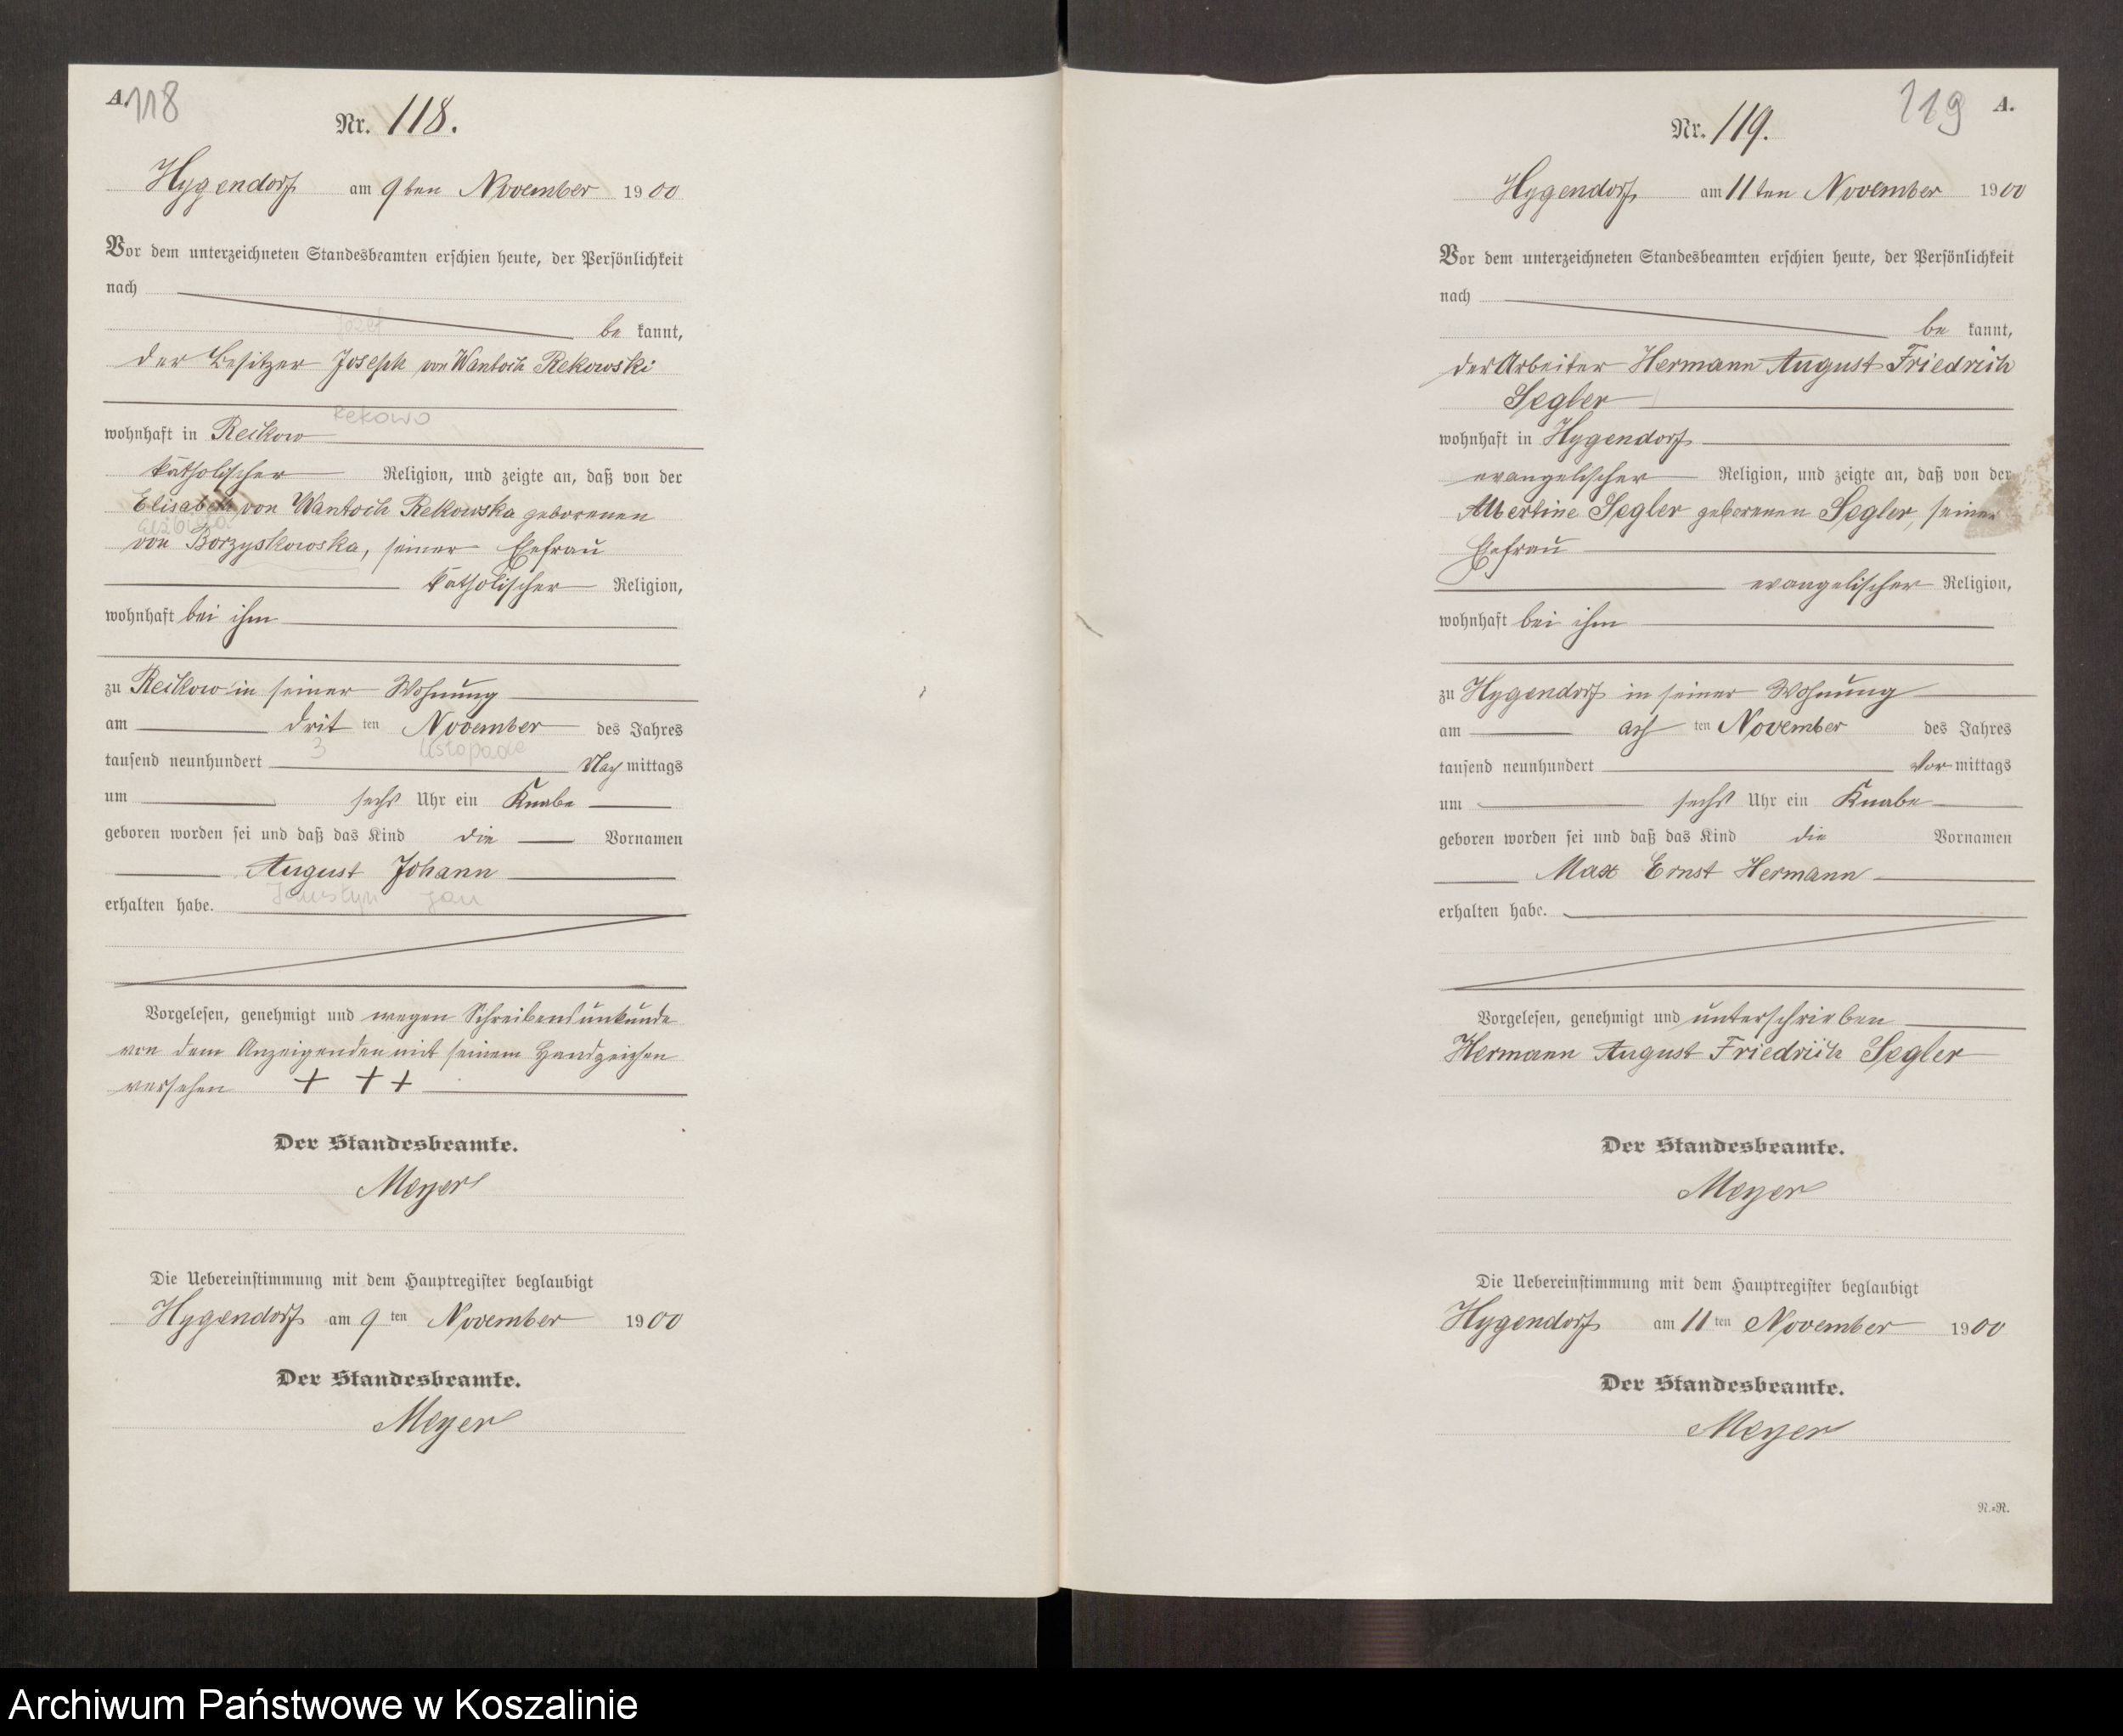 A.
118
Nr. 118.
Hygendorf am 9ten November 1900
Vor dem unterzeichneten Standesbeamten erschien heute, der Persönlichkeit
nach
Jozef
be kannt,
der Besitzer Joseph von Wantoch Rekowski
Rekowo
wohnhaft in Reckow
katholischer Religion, und zeigte an, daß von der
Elisabeth von Wantoch Rekowska geborenen
Elżbieta
von Borzyskowska, seiner Ehefrau
katholischer Religion,
wohnhaft bei ihm
zu Reckow in seiner Wohnung
am drit ten November des Jahres
3 listopada
tausend neunhundert Nach mittags
um sechs Uhr ein Knabe
geboren worden sei und daß das Kind die Vornamen
August Johann
Jan
erhalten habe.
Vorgelesen, genehmigt und wegen Schreibensunkunde
von dem Anzeigenden mit seinem Handzeichen
versehen + + +
Der Standesbeamte.
Meyer
Die Uebereinstimmung mit dem Hauptregister beglaubigt
Hygendorf am 9 ten November 1900
Der Standesbeamte.
Meyer
119
A.
Nr. 119.
Hygendorf am 11ten November 1900
Vor dem unterzeichneten Standesbeamten erschien heute, der Persönlichkeit
nach
be kannt,
der Arbeiter Hermann August Friedrich
Segler
wohnhaft in Hygendorf
evangelischer Religion, und zeigte an, daß von der
Albertine Segler geborenen Segler, seiner
Ehefrau
evangelischer Religion,
wohnhaft bei ihm
zu Hygendorf in seiner Wohnung
am ach ten November des Jahres
tausend neunhundert Vor mittags
um sechs Uhr ein Knabe
geboren worden sei und daß das Kind die Vornamen
Max Ernst Hermann
erhalten habe.
Vorgelesen, genehmigt und unterschrieben
Hermann August Friedrich Segler
Der Standesbeamte.
Meyer
Die Uebereinstimmung mit dem Hauptregister beglaubigt
Hygendorf am 11 ten November 1900
Der Standesbeamte.
Meyer
R.=R.
Archiwum Państwowe w Koszalinie